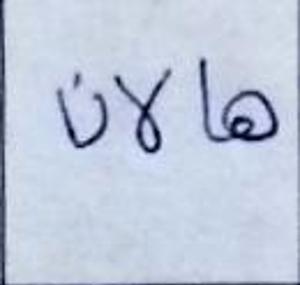 هالانا